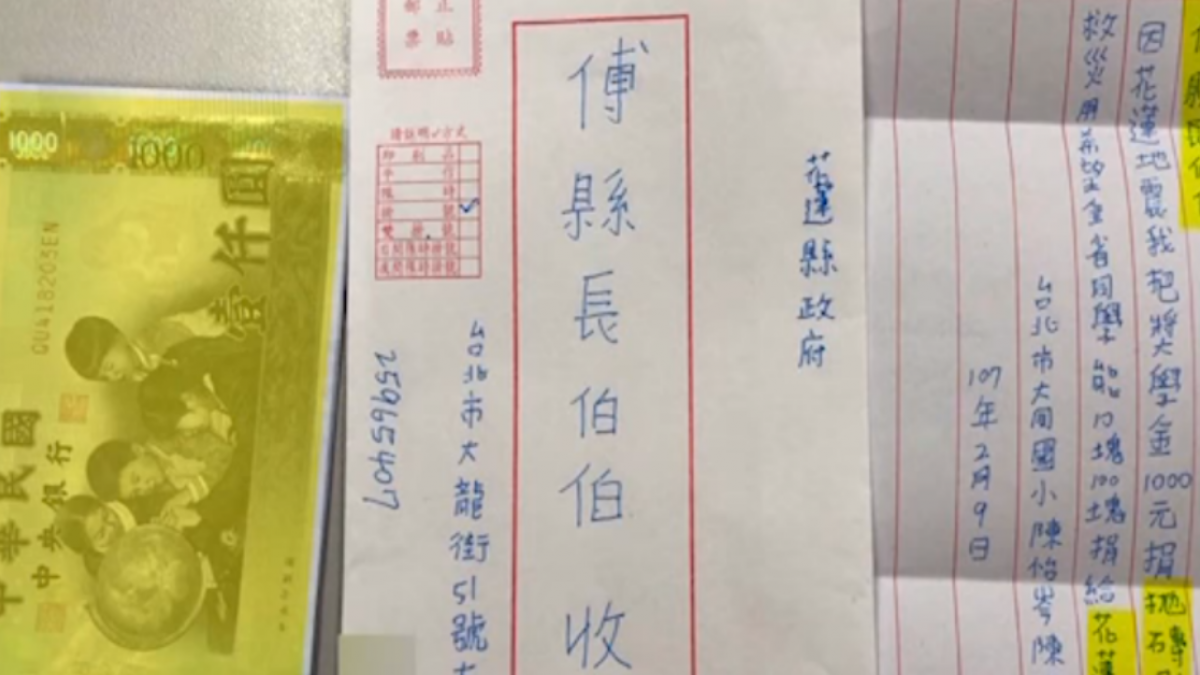 因花蓮地震我把獎學金1000元捐拋磚
救災用希望全省同學能10塊100塊捐給花蓮
台北市大同國小陳怡岑陳
107年2月9日
花蓮縣政府
傅縣長伯伯 收
正貼
郵票
印刷品
限時
掛號
台北市大龍街51號
25965407
1000
1000
壹仟圓
QU418205EN
中華民國
中央銀行